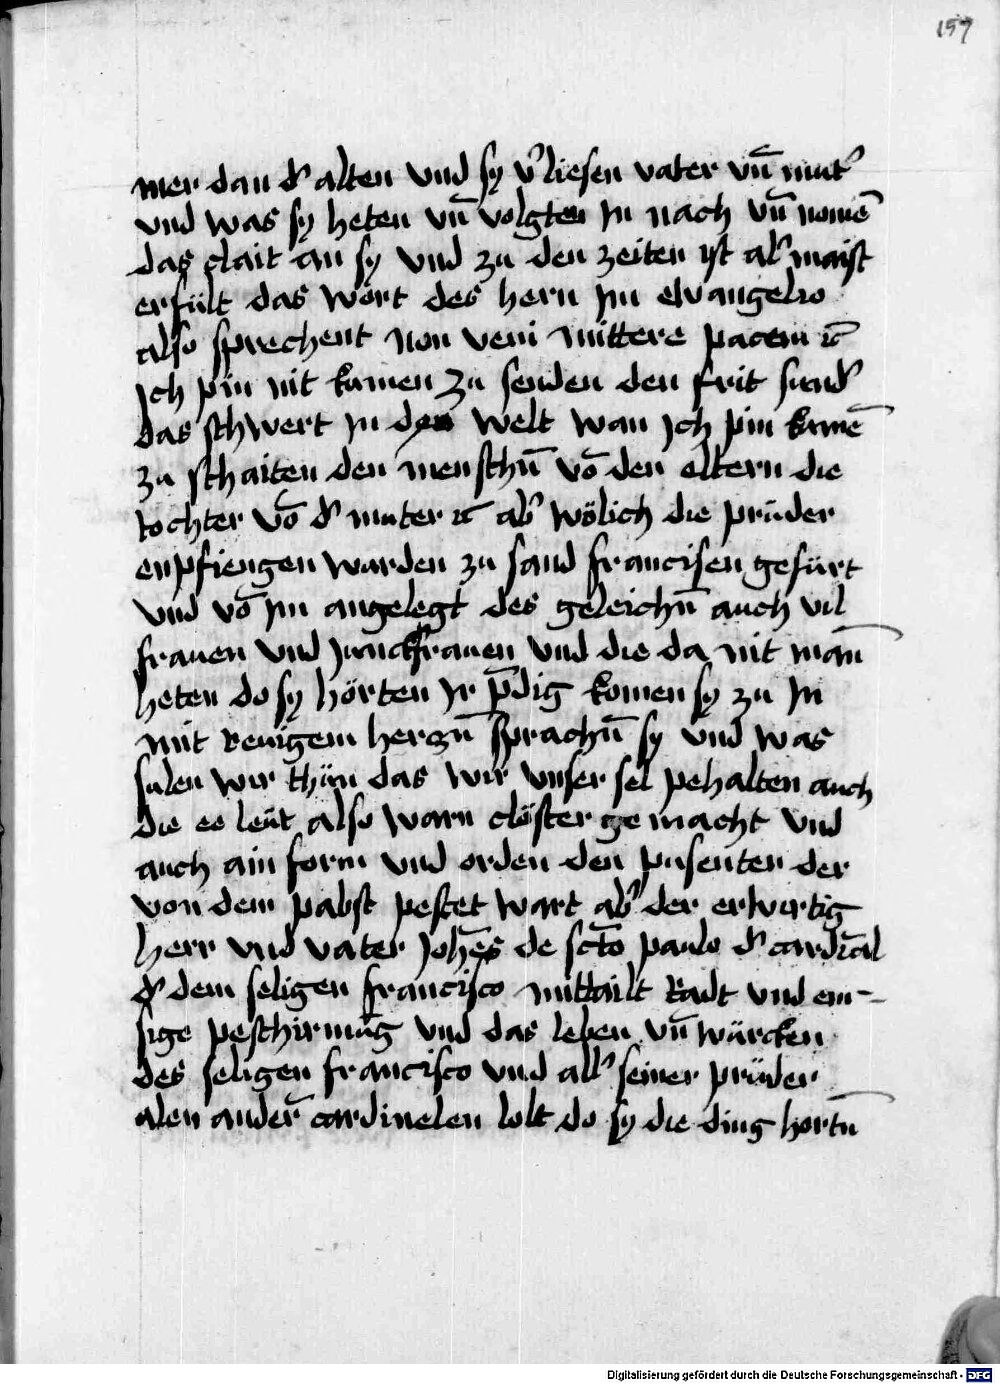 157
mer dan dˀ alten vnd sy vˀliesen vater vn̄ mutˀ
vnd was sy heten vn̄ volgten Jn nach vn̄ nomē
das clait an sy vnd zu den zeiten yst alˀ maist
erfült das wört des hern Jm ewangelio
also sprechent Non veni mittere pacem ꝛc̄
Jch pin nit kumen zu senden den frit sundˀ
das schwert Jn den welt wan Jch pin kumē
zu schaiten den menschn̄ vō den eltern die
tochter vō dˀ muter ꝛc abˀ wölich die prüder
enpfiengen wurden zu sand francisen gefürt
vnd vō Jm angelegt des geleichn̄ auch vil
frauen vnd Junckfrauen vnd die da nit man̄
heten do sy hörten Jr p̄dig komen sy zu Jn
mit reuigem herczn̄ sprachn̄ sy vnd was
sulen wir thün das wir vnser sel pehalten auch
die ee leüt also warn clöster gemacht vnd
auch ain form vnd orden den pusenten der
von dem pabst pestet wart abˀ der erwirtig
herr vnd vater Johēs de sct̄o paulo dˀ cardīal
dˀ dem seligen francisco mittailt Radt vnd em-
sige peschirmūg vnd das leben vn̄ würcken
des seligen francisco vnd allˀ seiner prüder
alen anderˉ cardinelen lobt do sy die ding hortn̄
Digitalisierung gefördert durch die Deutsche Forschungsgemeinschaft - DFG